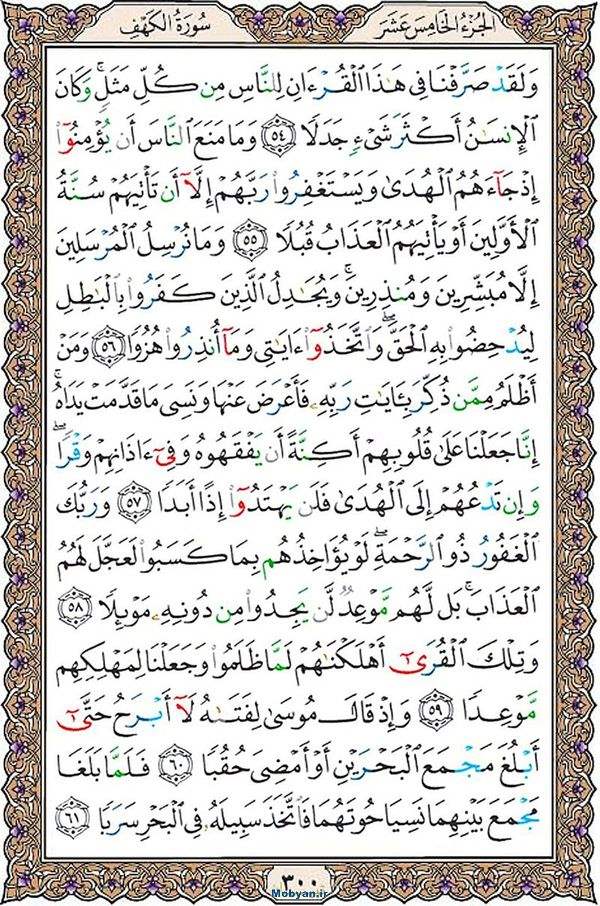 الجزء الخامس عشر
سورة الكهف
وَلَقَدْ صَرَّفْنَا فِى هَٰذَا ٱلْقُرْءَانِ لِلنَّاسِ مِن كُلِّ مَثَلٍۚ وَكَانَ
ٱلْإِنسَٰنُ أَكْثَرَ شَىْءٍ جَدَلًا ٥٤ وَمَا مَنَعَ ٱلنَّاسَ أَن يُؤْمِنُوٓا۟
إِذْ جَآءَهُمُ ٱلْهُدَىٰ وَيَسْتَغْفِرُوا۟ رَبَّهُمْ إِلَّآ أَن تَأْتِيَهُمْ سُنَّةُ
ٱلْأَوَّلِينَ أَوْ يَأْتِيَهُمُ ٱلْعَذَابُ قُبُلًا ٥٥ وَمَا نُرْسِلُ ٱلْمُرْسَلِينَ
إِلَّا مُبَشِّرِينَ وَمُنذِرِينَۚ وَيُجَٰدِلُ ٱلَّذِينَ كَفَرُوا۟ بِٱلْبَٰطِلِ
لِيُدْحِضُوا۟ بِهِ ٱلْحَقَّۖ وَٱتَّخَذُوٓا۟ ءَايَٰتِى وَمَآ أُنذِرُوا۟ هُزُوًا ٥٦ وَمَنْ
أَظْلَمُ مِمَّن ذُكِّرَ بِـَٔايَٰتِ رَبِّهِۦ فَأَعْرَضَ عَنْهَا وَنَسِىَ مَا قَدَّمَتْ يَدَاهُۚ
إِنَّا جَعَلْنَا عَلَىٰ قُلُوبِهِمْ أَكِنَّةً أَن يَفْقَهُوهُ وَفِىٓ ءَاذَانِهِمْ وَقْرًاۖ
وَإِن تَدْعُهُمْ إِلَى ٱلْهُدَىٰ فَلَن يَهْتَدُوٓا۟ إِذًا أَبَدًا ٥٧ وَرَبُّكَ
ٱلْغَفُورُ ذُو ٱلرَّحْمَةِۖ لَوْ يُؤَاخِذُهُم بِمَا كَسَبُوا۟ لَعَجَّلَ لَهُمُ
ٱلْعَذَابَۚ بَل لَّهُم مَّوْعِدٌ لَّن يَجِدُوا۟ مِن دُونِهِۦ مَوْئِلًا ٥٨
وَتِلْكَ ٱلْقُرَىٰٓ أَهْلَكْنَٰهُمْ لَمَّا ظَلَمُوا۟ وَجَعَلْنَا لِمَهْلِكِهِم
مَّوْعِدًا ٥٩ وَإِذْ قَالَ مُوسَىٰ لِفَتَىٰهُ لَآ أَبْرَحُ حَتَّىٰٓ
أَبْلُغَ مَجْمَعَ ٱلْبَحْرَيْنِ أَوْ أَمْضِىَ حُقُبًا ٦٠ فَلَمَّا بَلَغَا
مَجْمَعَ بَيْنِهِمَا نَسِيَا حُوتَهُمَا فَٱتَّخَذَ سَبِيلَهُۥ فِى ٱلْبَحْرِ سَرَبًا ٦١
٣٠٠
Mobyan.ir